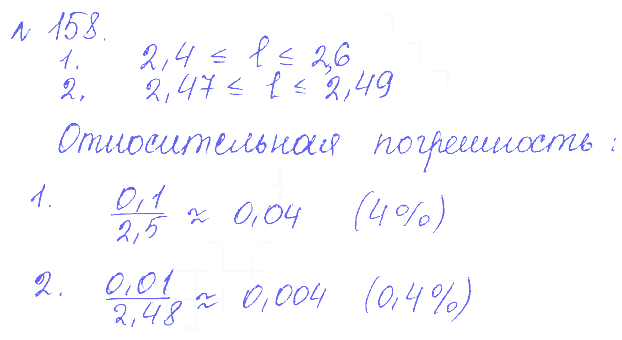 № 158.
1. 2,4 ≤ l ≤ 2,6
2. 2,47 ≤ l ≤ 2,49
Относительная погрешность:
1. 0,1/2,5 ≈ 0,04 (4%)
2. 0,01/2,48 ≈ 0,004 (0,4%)